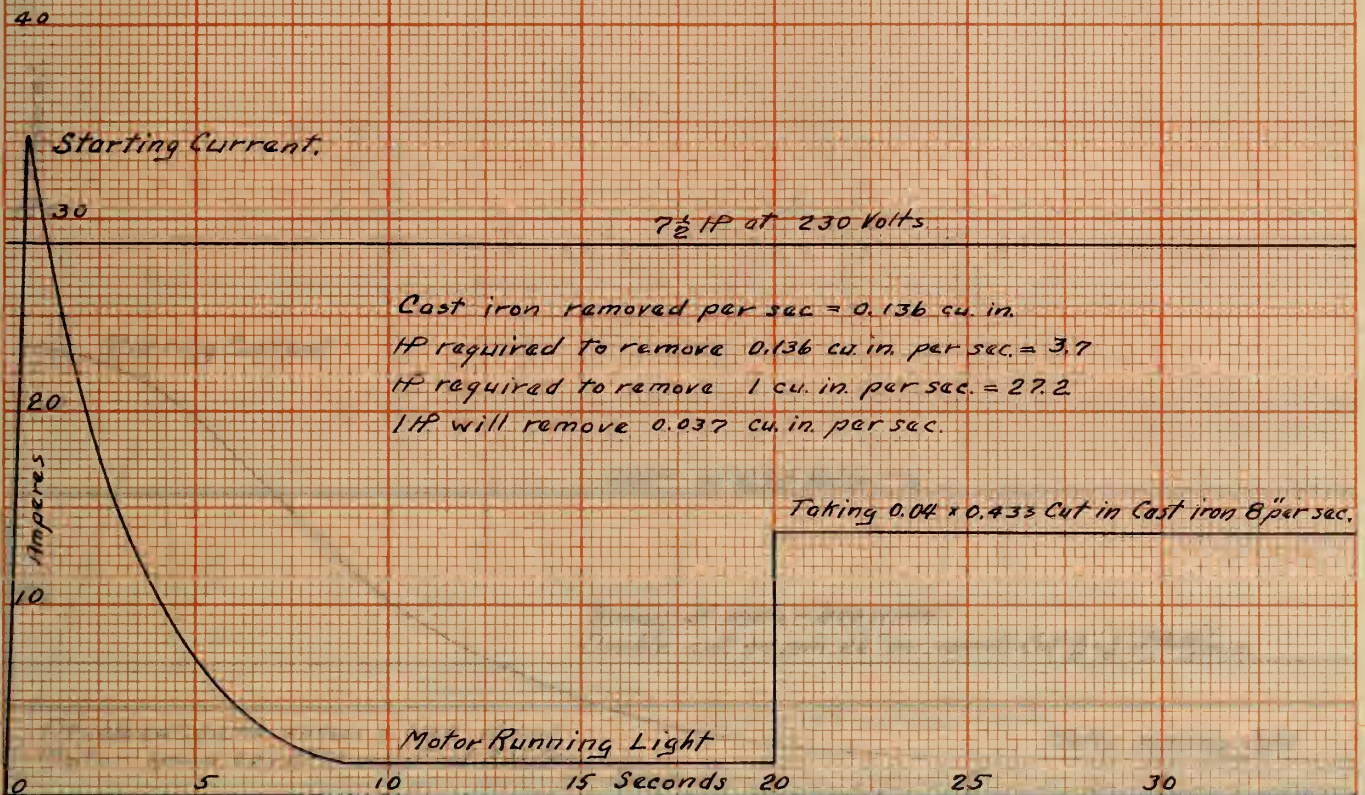 40
Starting Current.
30
7½ HP at 230 Volts.
Cast iron removed per sec = 0.136 cu. in.
HP required to remove 0.136 cu. in. per sec. = 3.7
HP required to remove 1 cu. in. per sec. = 27.2
1 HP will remove 0.037 cu. in. per sec.
20
Amperes
Taking 0.04 x 0.433 Cut in Cast iron 8" per sec.
10
Motor Running Light
0 5 10 15 Seconds 20 25 30